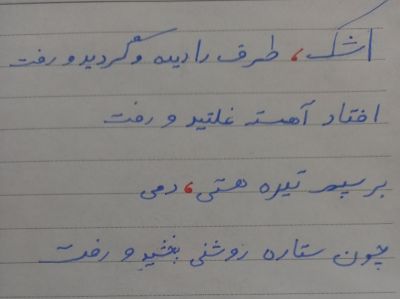 اشک، طرف را دیده و گردید و رفت
افتاد آهسته غلتید و رفت
بر سپهر تیره هستی، دمی
چون ستاره روشنی بخشید و رفت